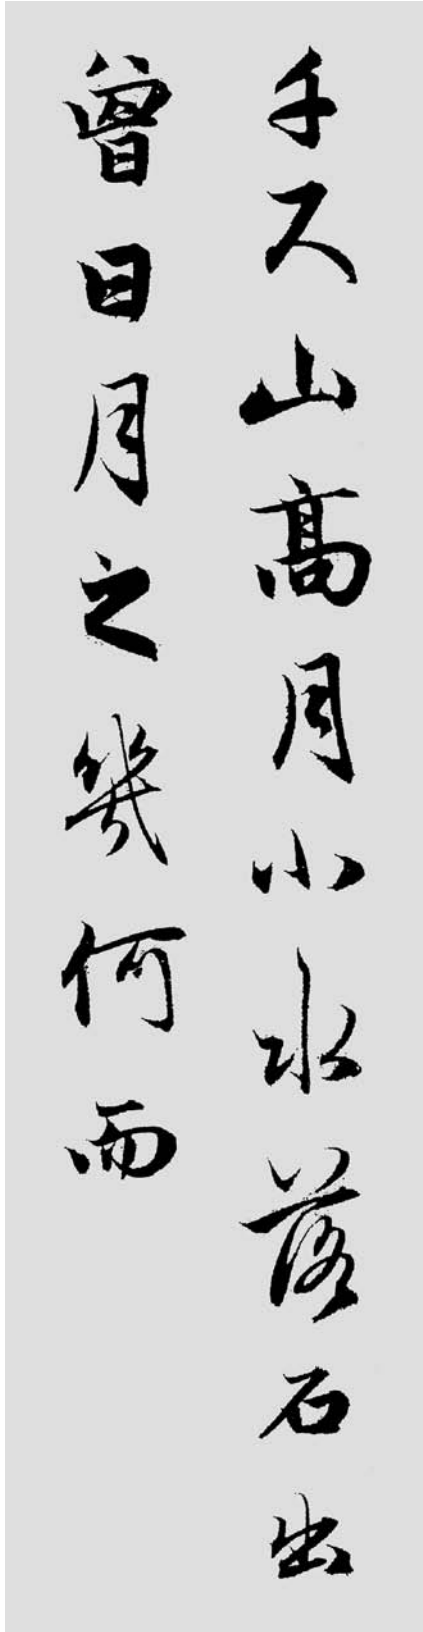 千尺山高月小水落石出
曾日月之幾何而